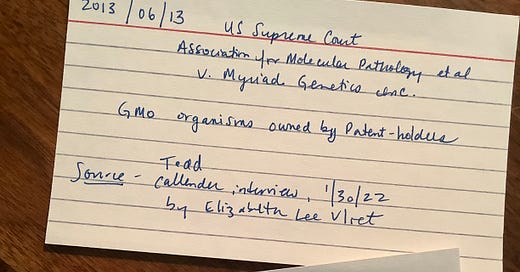 2013/06/13
US Supreme Court
Association for Molecular Pathology et al
v. Myriad Genetics inc.
GMO organisms owned by Patent-holders
Todd
Source - Callender interview, 1/30/22
by Elizabeth Lee Vliet